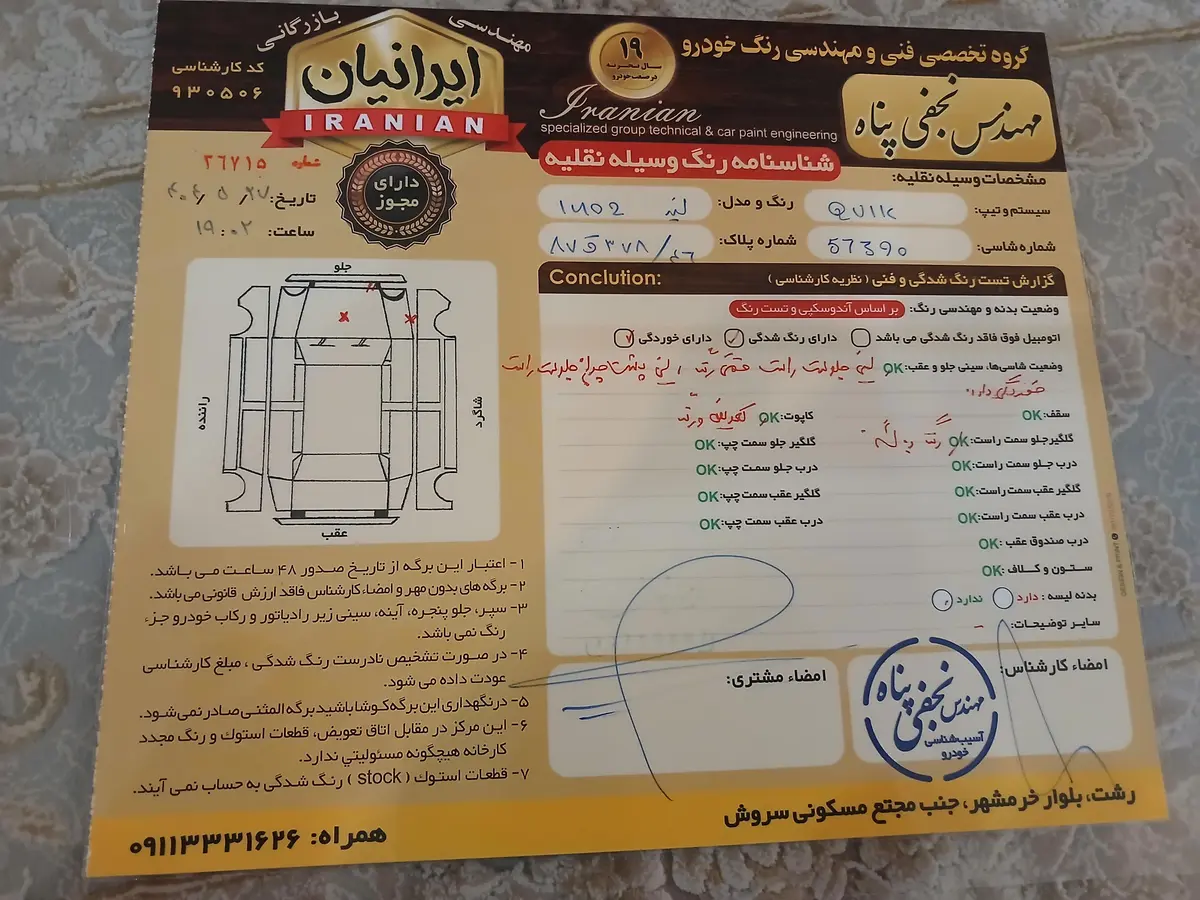 گروه تخصصی فنی و مهندسی رنگ خودرو
مهندس نجفی پناه
۱۹
سال تجربه
در صنعت خودرو
Iranian
specialized group technical & car paint engineering
شناسنامه رنگ وسیله نقلیه
مهندسی بازرگانی
ایرانیان
IRANIAN
کد کارشناسی
۹۳۰۵۰۶
شماره ۲۶۷۱۵
تاریخ: ۴۰۴/۵/۲۷
ساعت: ۱۹:۰۲
دارای
مجوز
مشخصات وسیله نقلیه:
سیستم و تیپ: QUIK
رنگ و مدل: 1402
شماره شاسی: 57390
شماره پلاک: ۸۷ق۳۷۸/۴۶
جلو
راننده
شاگرد
عقب
Conclution:
گزارش تست رنگ شدگی و فنی ( نظریه کارشناسی )
وضعیت بدنه و مهندسی رنگ: بر اساس آندوسکپی و تست رنگ
اتومبیل فوق فاقد رنگ شدگی می باشد دارای رنگ شدگی ✓ دارای خوردگی ✓
وضعیت شاسی‌ها، سینی جلو و عقب: OK جلو سمت راست پشت چراغ جلو سمت راست
خوردگی دارد.
سقف: OK
کاپوت: OK
گلگیر جلو سمت راست: OK رنگ
گلگیر جلو سمت چپ: OK
درب جلو سمت راست: OK
درب جلو سمت چپ: OK
گلگیر عقب سمت راست: OK
گلگیر عقب سمت چپ: OK
درب عقب سمت راست: OK
درب عقب سمت چپ: OK
درب صندوق عقب: OK
ستون و کلاف: OK
بدنه لیسه: دارد ندارد
سایر توضیحات: -
امضاء کارشناس:
امضاء مشتری:
مهندس نجفی پناه
آسیب‌شناسی
خودرو
۱- اعتبار این برگه از تاریخ صدور ۴۸ ساعت می باشد.
۲- برگه های بدون مهر و امضاء کارشناس فاقد ارزش قانونی می باشد.
۳- سپر، جلو پنجره، آینه، سینی زیر رادیاتور و رکاب خودرو جزء
رنگ نمی باشد.
۴- در صورت تشخیص نادرست رنگ شدگی، مبلغ کارشناسی
عودت داده می شود.
۵- درنگهداری این برگه کوشا باشید برگه المثنی صادر نمی شود.
۶- این مرکز در مقابل اتاق تعویض، قطعات استوک و رنگ مجدد
کارخانه هیچگونه مسئولیتی ندارد.
۷- قطعات استوک ( stock ) رنگ شدگی به حساب نمی آیند.
رشت، بلوار خرمشهر، جنب مجتمع مسکونی سروش
همراه: ۰۹۱۱۳۳۳۱۶۲۶